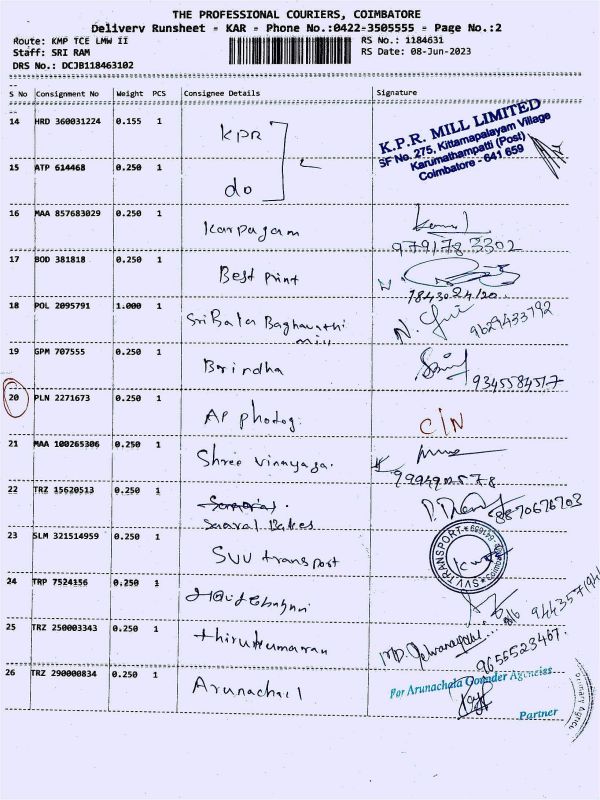 THE PROFESSIONAL COURIERS, COIMBATORE
Delivery Runsheet - KAR - Phone No.:0422-3505555 - Page No.:2
Route: KMP TCE LMW II
RS No.: 1184631
Staff: SRI RAM
RS Date: 08-Jun-2023
DRS No.: DCJB118463102
S No Consignment No Weight PCS Consignee Details Signature
14 HRD 360031224 0.155 1 KPR
K.P.R. MILL LIMITED
SF No. 275, Kittampalayam Village
Karumathampatti (Post)
Coimbatore - 641 659
15 ATP 614468 0.250 1 do
16 MAA 857683029 0.250 1 Karpagam
9791783302
17 BOD 381818 0.250 1 Best print
18 POL 2095791 1.000 1 Sri Bala Baghavathi
mill
9629433792
19 GPM 707555 0.250 1 Brindha
9345584517
20 PLN 2271673 0.250 1 AP photog. C/N
21 MAA 100265306 0.250 1 Shree vinayaga.
22 TRZ 15620513 0.250 1
Saaral Bakes
8870676703
23 SLM 321514959 0.250 1 SVV transport
SVV TRANSPORT
24 TRP 7524156 0.250 1
25 TRZ 250003343 0.250 1 thirukumaran
9655523467.
26 TRZ 290000834 0.250 1 Arunachal
For Arunachala Gounder Agencies
Partner